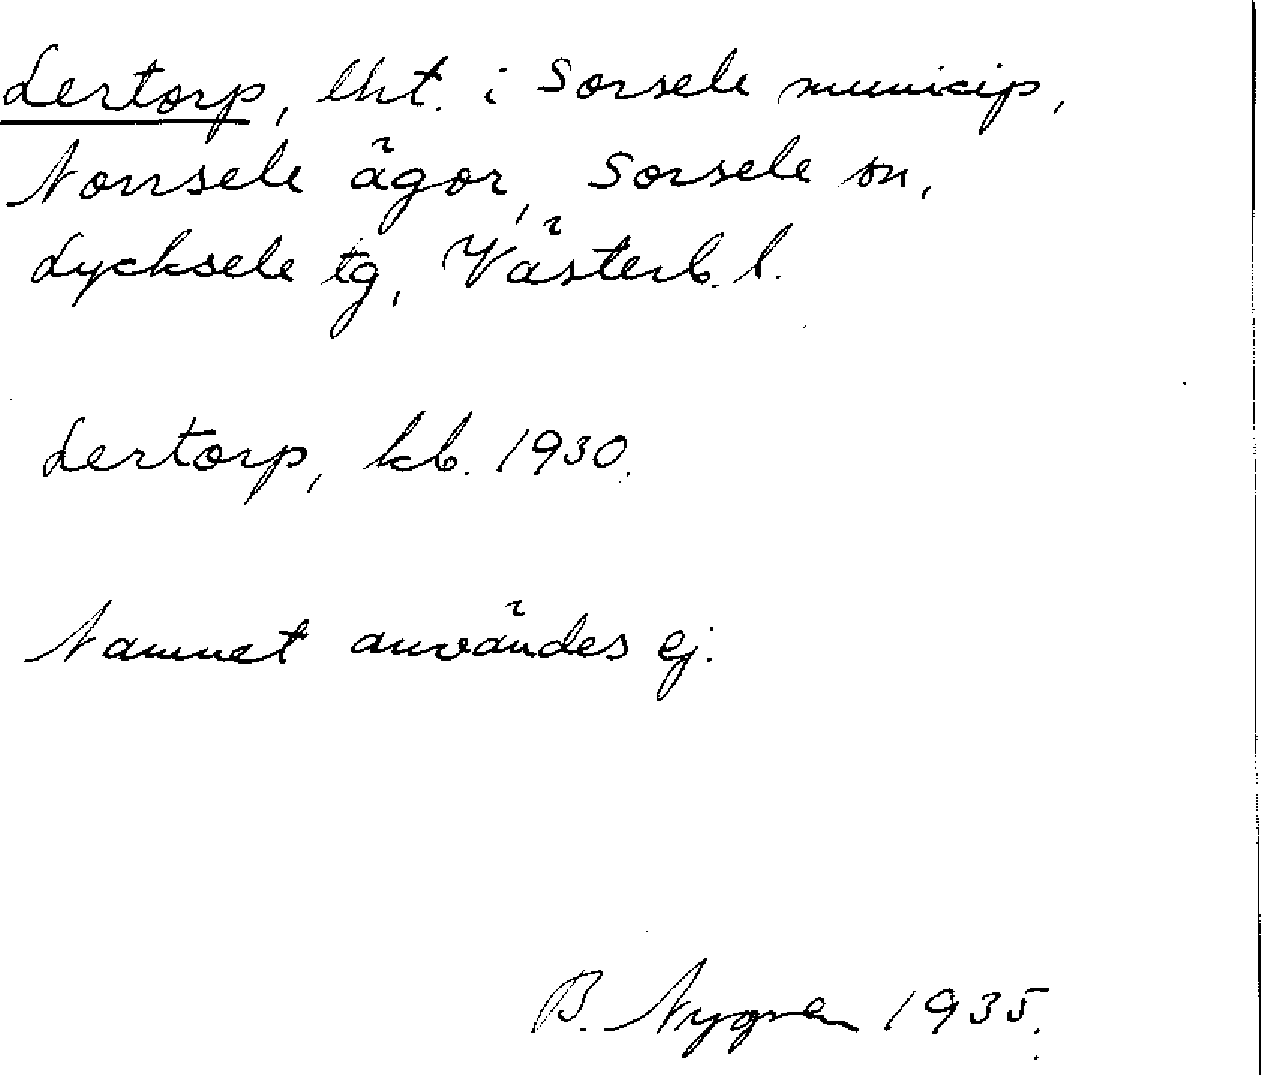 Lertorp, lht. i Sorsele municip,
Norrsele ägor, Sorsele sn,
Lycksele tg, Västerb. l.
Lertorp, kb. 1930.
Namnet användes ej.
B. Nygren 1935.